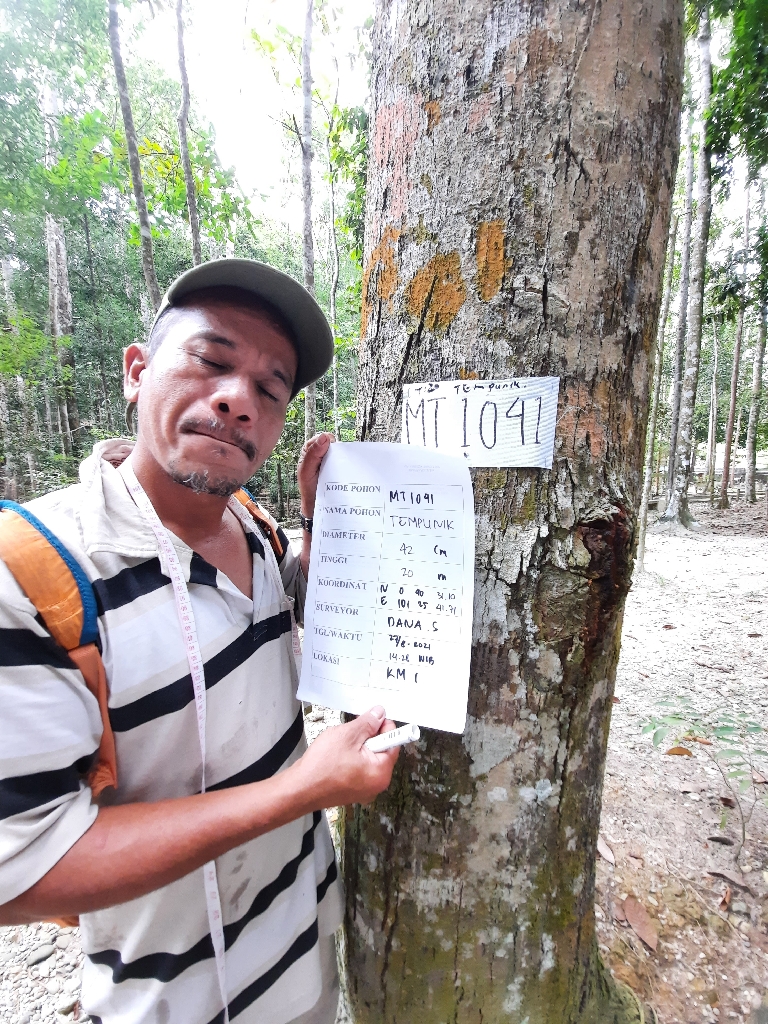 TEMPUNIK.
MT 1041
KODE POHON MT1041
NAMA POHON TEMPUNIK
DIAMETER 42 Cm
TINGGI 20 m
KOORDINAT N 0 40 31.10
E 101 25 41.71
SURVEYOR DANA S
TGL/WAKTU 27/8-2021
14.28 WIB
LOKASI KM 1